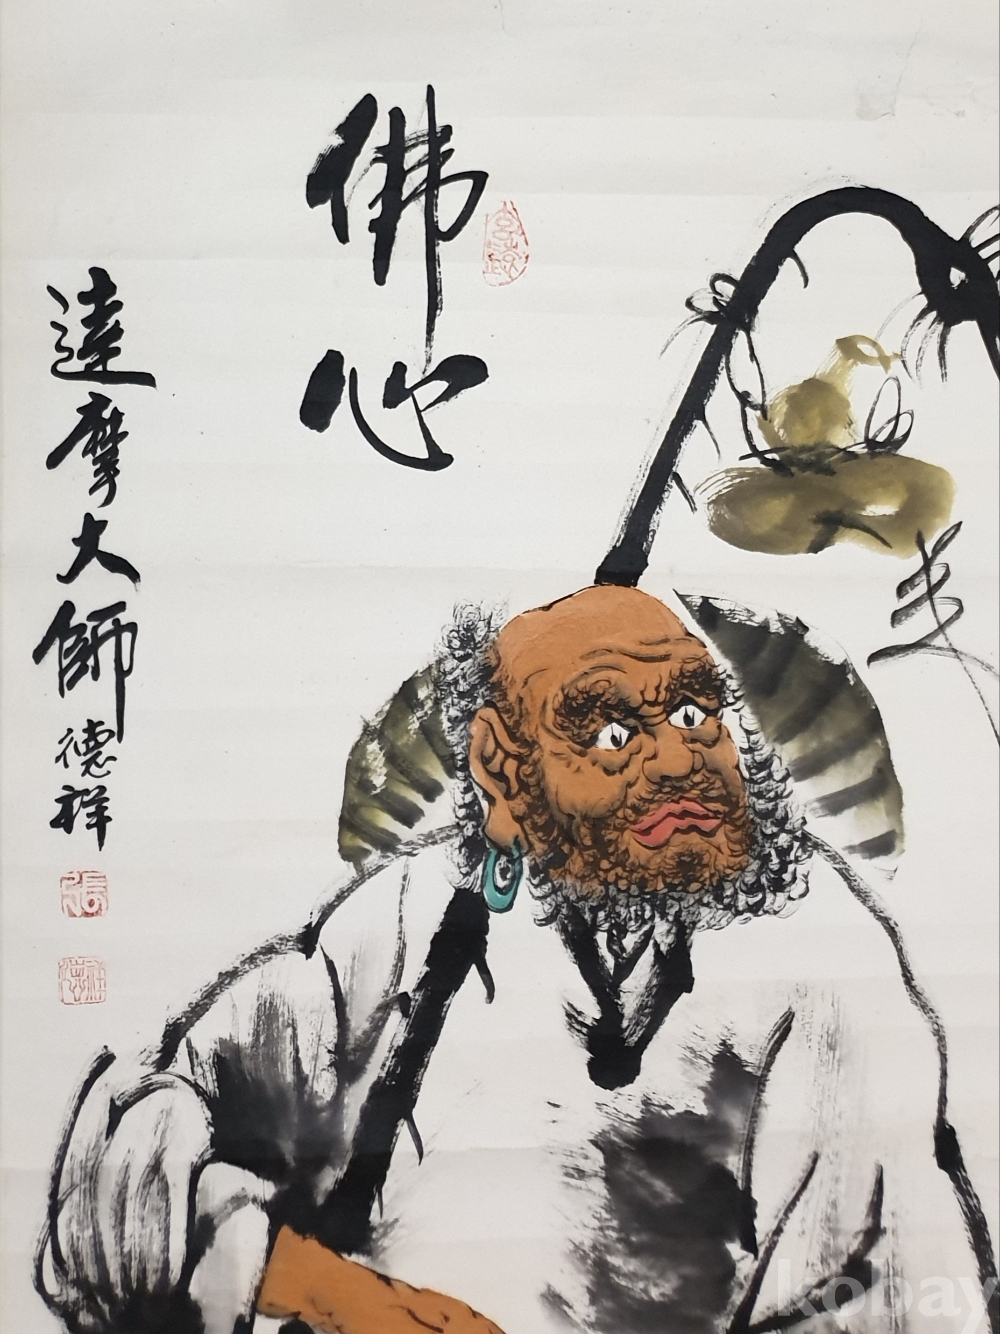 佛心
達摩大師
德祥
kobay